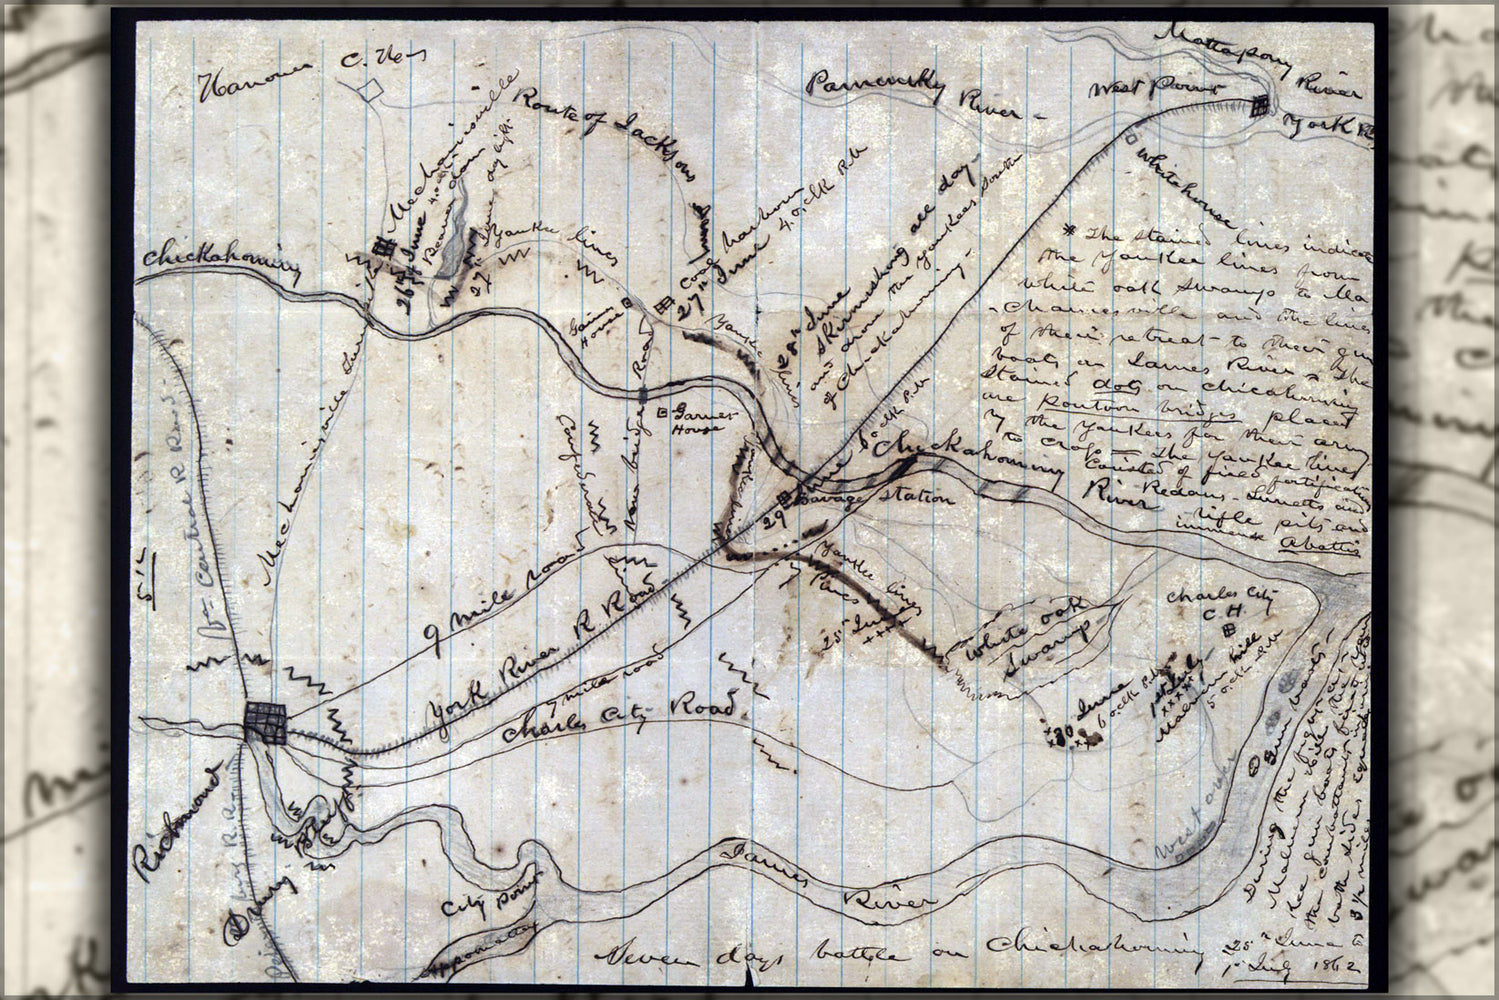 Hanover C. Hos
Mattapony River
Pamunky River
West Point
York R
Whitehouse
Mechanicsville
26th June 4. o.clk
Beaver dam
27th June day light
Route of Jackson
Yankee lines
Chickahominy
Coal harbour
27th June 4. o.clk P.M.
Gaines House
28th June
Skirmishing all day
and drove the Yankees South
of Chickahominy.
* The stained lines indicate
the Yankee lines from
white oak Swamp to Me-
-chanicsville and the lines
of their retreat to their gun
boats on James River & The
Stained dots on chicahominy
are pontoon bridges placed
by the Yankees for their army
to cross — The Yankee lines
Consisted of field fortifications
Redans - Lunetts and
rifle pits and
immense abattis
Mechanicsville Turnpike
New bridge Road
Garnet House
Confederate
Yankee lines
Yankee lines
Chickahominy River
29 June 6 o clk P.M.
Savage Station
Va Central R Road.
9 mile road
York River R Road
7 mile road
Charles City Road.
Lines
Yankee lines
7 Pines
25th June
++++
White oak Swamp
Charles City C. H.
30 June
6 o.clk P.M.
1st July
xxxx
Malvern hill
5 o.clk P.M.
Gun boats
West over
During the fight
Malvern hill
the gun boats
the combattants
both sides
3 1/2 miles
Richmond
Drury Bluff
City Point
Appomattox
James River
Seven days battle on Chickahominy
25th June to
1st July 1862